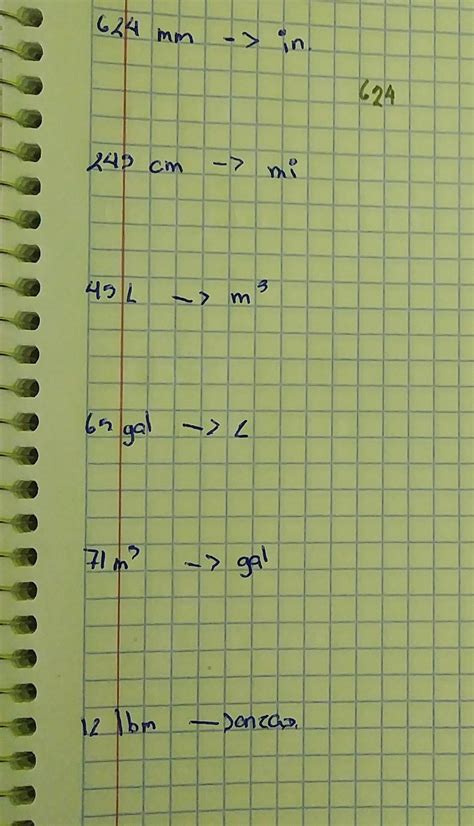 624 mm -> in.
624
249 cm -> mi
45 L -> m³
65 gal -> L
71 m³ -> gal
12 lbm —